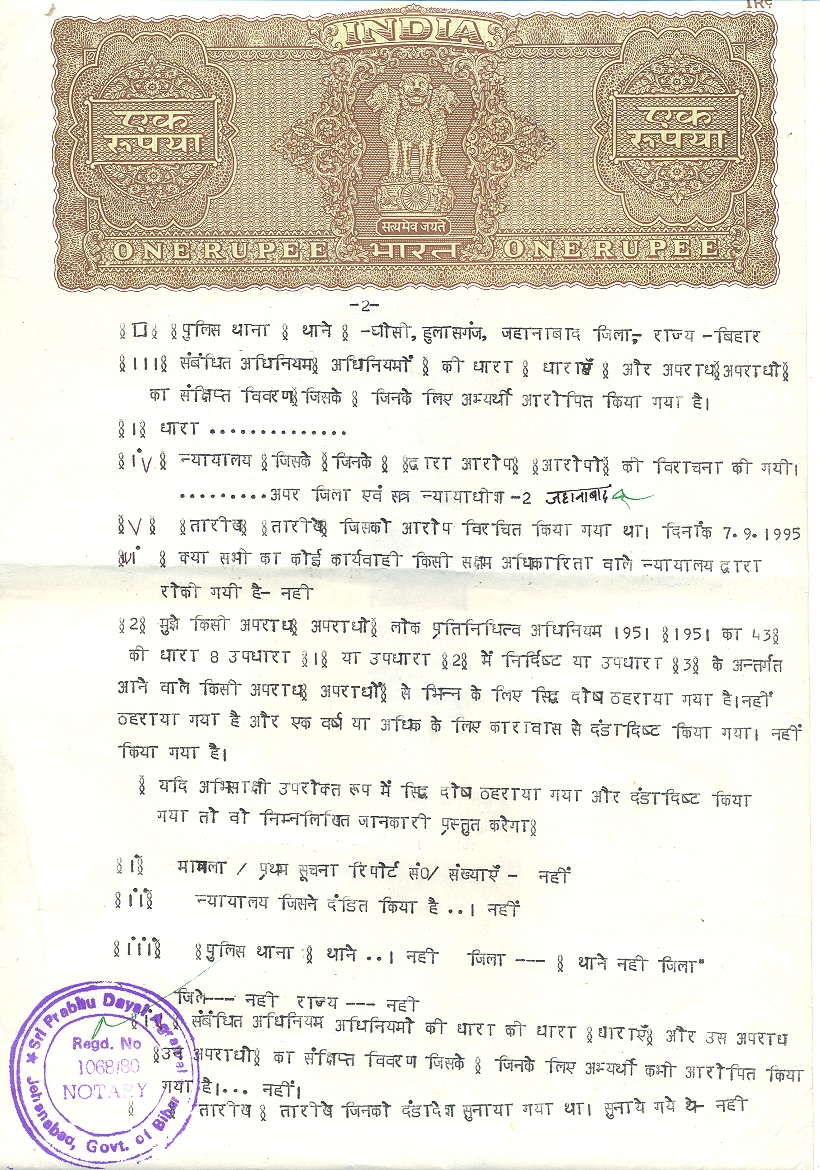 INDIA
एक
रूपया
एक
रूपया
सत्यमेव जयते
ONE RUPEE भारत ONE RUPEE
-2-
§□§ §पुलिस थाना § थाने § -घोसी, हुलासगंज, जहानाबाद जिला, राज्य -बिहार
§III§ संबंधित अधिनियम§ अधिनियमों § की धारा § धाराएँ § और अपराध§अपराधों§
का संक्षिप्त विवरण§जिसके § जिनके लिए अभ्यर्थी आरोपित किया गया है।
§I§ धारा ..............
§iv § न्यायालय §जिसके §जिनके § §द्वारा आरोप§ §आरोपों§ की विराचना की गयी।
.........अपर जिला एवं सत्र न्यायाधीश -2 जहानाबाद
§v § §तारीख§ §तारीखें§ जिसको आरोप विरचित किया गया था। दिनांक 7.9.1995
§vi § क्या सभी का कोई कार्यवाही किसी सक्षम अधिकारिता वाले न्यायालय द्वारा
रोकी गयी है- नहीं
§2§ मुझे किसी अपराध§ अपराधों§ लोक प्रतिनिधित्व अधिनियम 1951 §1951 का 43§
की धारा 8 उपधारा §1§ या उपधारा §2§ में निर्दिष्ट या उपधारा §3§ के अन्तर्गत
आने वाले किसी अपराध§ अपराधों§ से भिन्न के लिए सिद्ध दोष ठहराया गया है।नहीं
ठहराया गया है और एक वर्ष या अधिक के लिए कारावास से दंडादिष्ट किया गया। नहीं
किया गया है।
§ यदि अभिसाक्षी उपरोक्त रूप में सिद्ध दोष ठहराया गया और दंडादिष्ट किया
गया तो वो निम्नलिखित जानकारी प्रस्तुत करेगा§
§i§ मामला / प्रथम सूचना रिपोर्ट सं0/ संख्याएँ - नहीं
§ii§ न्यायालय जिसने दंडित किया है ..। नहीं
§iii§ §पुलिस थाना § थाने ..। नही जिला --- § थाने नही जिला"
जिले--- नही राज्य --- नही
§i § संबंधित अधिनियम अधिनियमो की धारा की धारा §धाराएँ§ और उस अपराध
§उन अपराधो§ का संक्षिप्त विवरण जिसके § जिनके लिए अभ्यर्थी कभी आरोपित किया
गया है।... नहीं।
§ §तारीख § तारीखे जिनको दंडादेश सुनाया गया था। सुनाये गये थे- नही
★ Sri Prabhu Dayal Agrawal
Regd. No
1068/80
NOTARY
Jehanabad, Govt. of Bihar